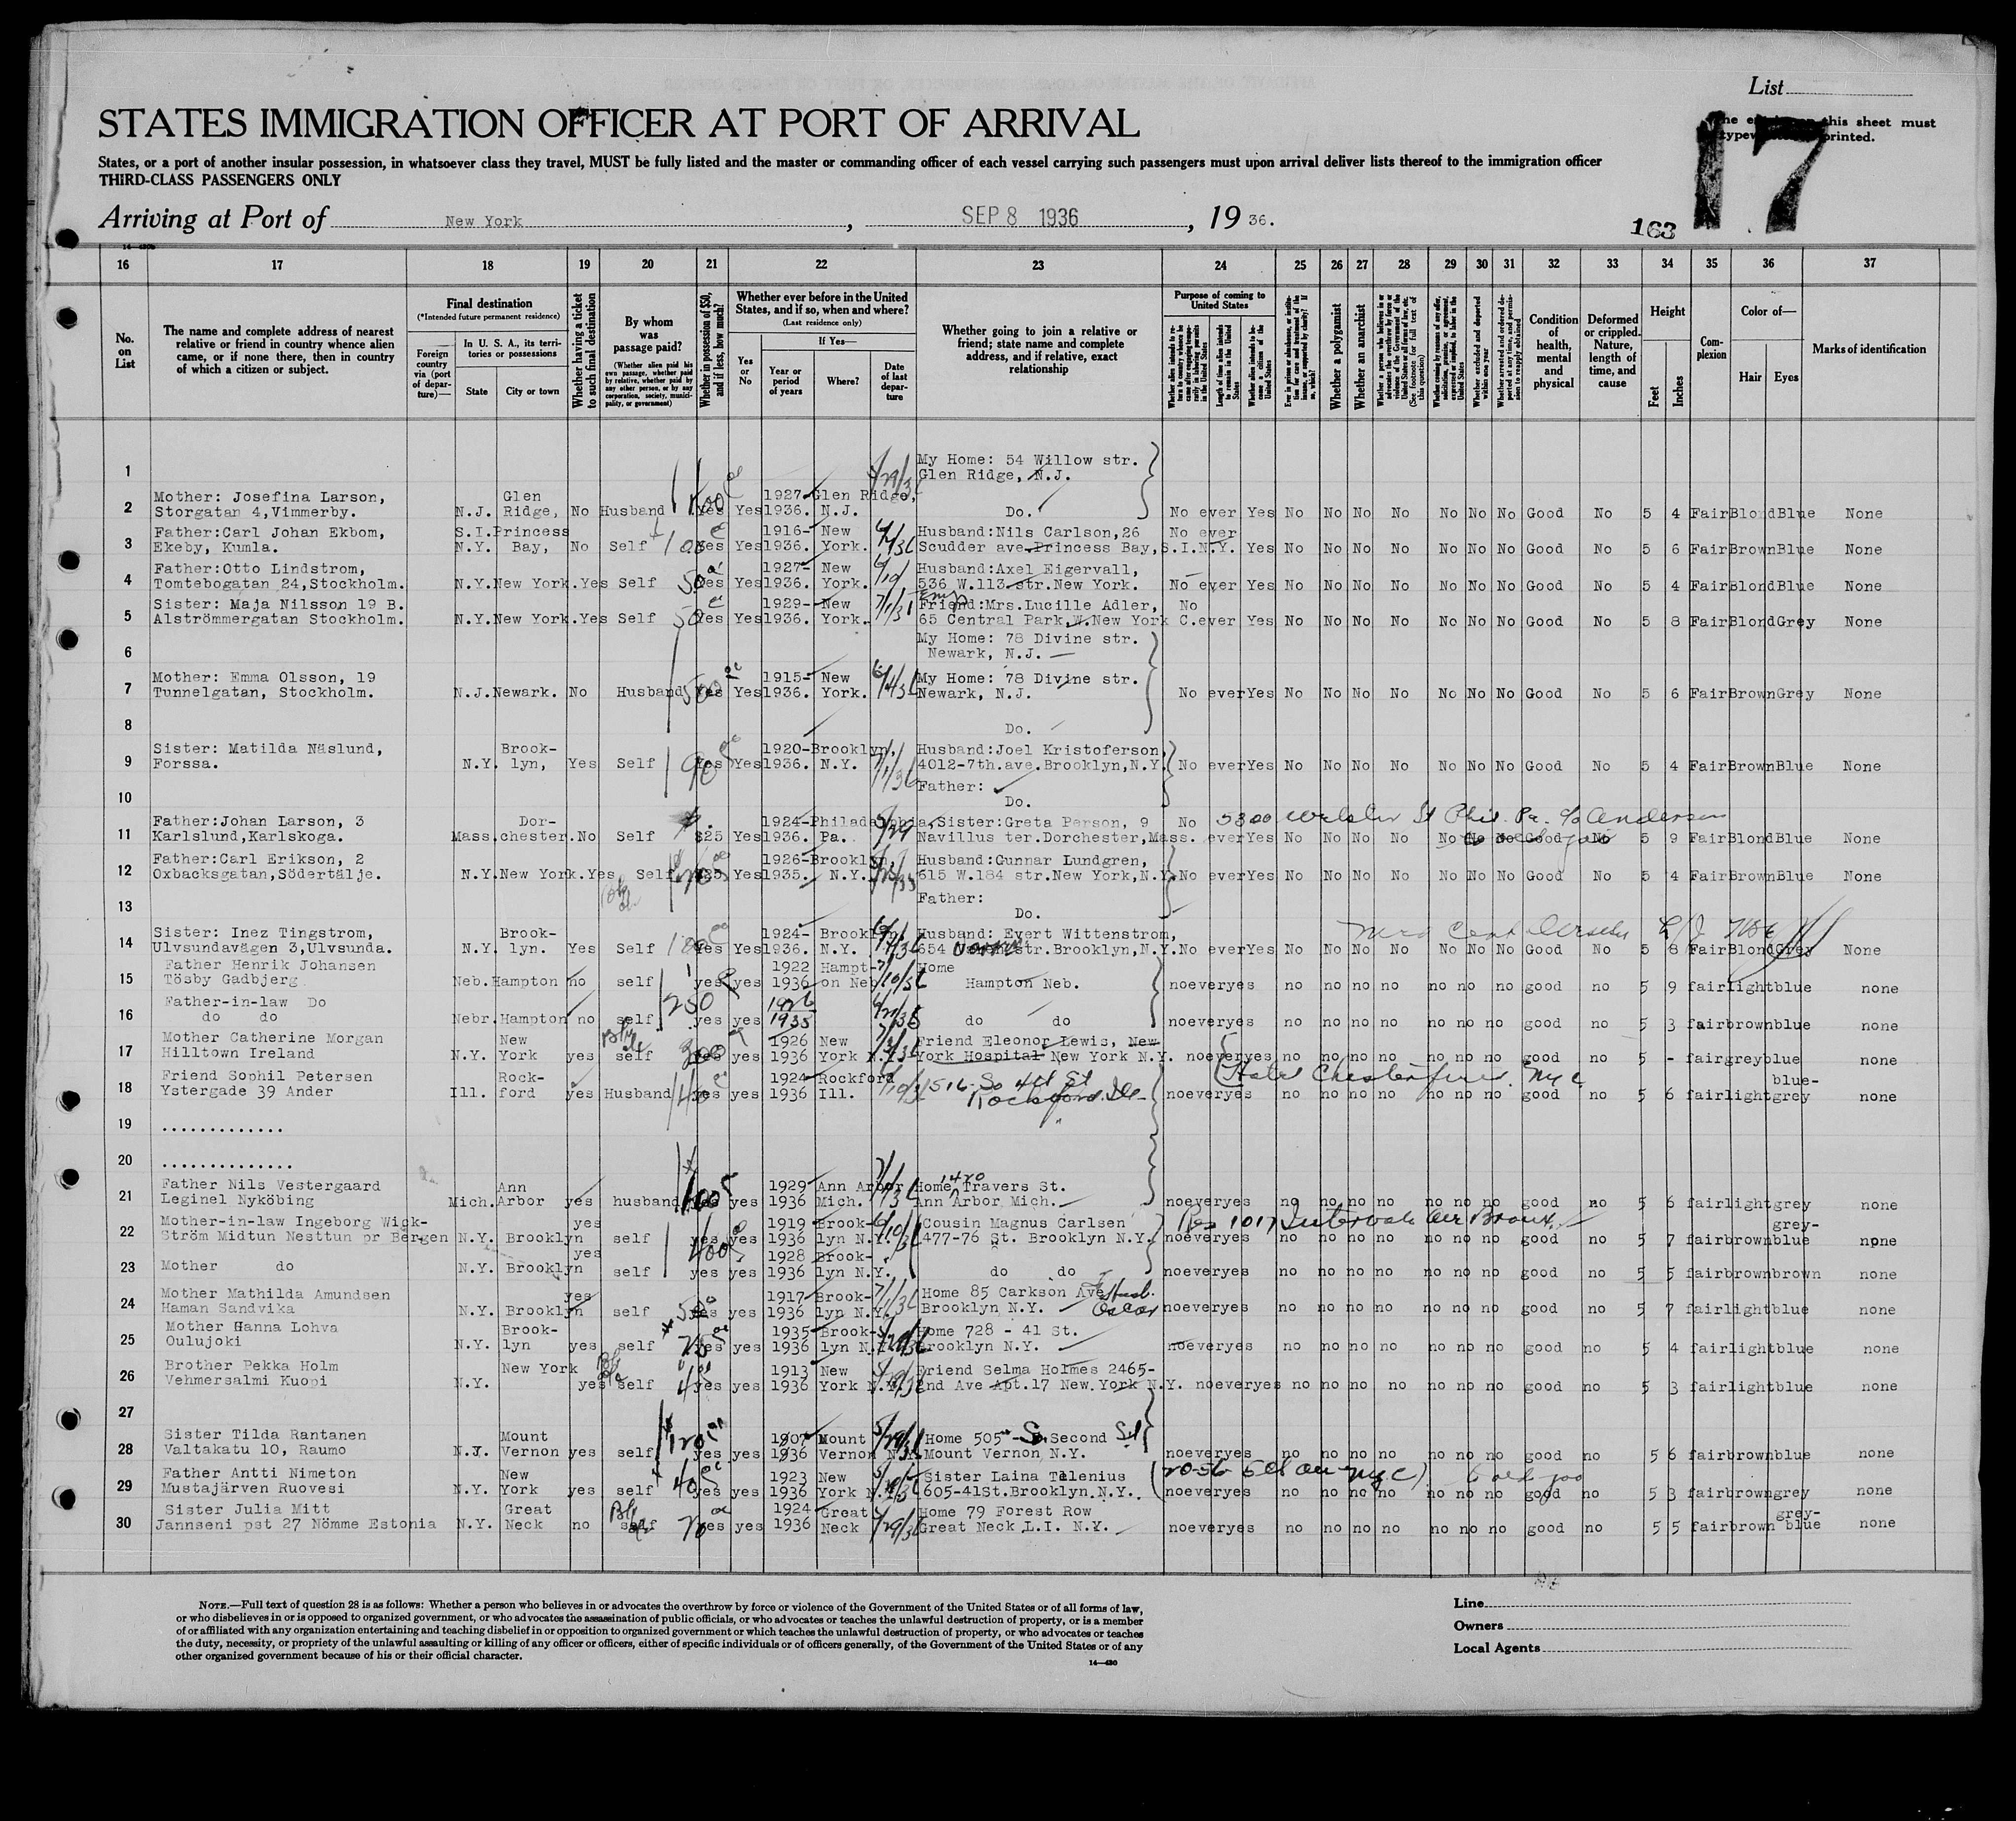 List
STATES IMMIGRATION OFFICER AT PORT OF ARRIVAL
this sheet must
printed.
17
States, or a port of another insular possession, in whatsoever class they travel, MUST be fully listed and the master or commanding officer of each vessel carrying such passengers must upon arrival deliver lists thereof to the immigration officer
THIRD-CLASS PASSENGERS ONLY
Arriving at Port of New York, SEP 8 1936, 19 36.
163
16 17 18 19 20 21 22 23 24 25 26 27 28 29 30 31 32 33 34 35 36 37
No. on List
The name and complete address of nearest relative or friend in country whence alien came, or if none there, then in country of which a citizen or subject.
Final destination
(*Intended future permanent residence)
Foreign country via (port of departure)—
In U. S. A., its territories or possessions
State
City or town
Whether having a ticket to such final destination
By whom was passage paid?
(Whether alien paid his own passage, whether paid by relative, whether paid by any other person, or by any corporation, society, municipality, or government)
Whether in possession of $50, and if less, how much?
Whether ever before in the United States, and if so, when and where?
(Last residence only)
Yes or No
If Yes—
Year or period of years
Where?
Date of last departure
Whether going to join a relative or friend; state name and complete address, and if relative, exact relationship
Purpose of coming to United States
Length of time alien intends to remain in the United States
Whether alien intends to become a citizen of the United States
Whether a polygamist
Whether an anarchist
Condition of health, mental and physical
Deformed or crippled. Nature, length of time, and cause
Height
Feet
Inches
Complexion
Color of—
Hair
Eyes
Marks of identification
1 My Home: 54 Willow str.
Glen Ridge, N.J.
2 Mother: Josefina Larson, Glen 1927- Glen Ridge,
Storgatan 4,Vimmerby. N.J. Ridge, No Husband Yes Yes 1936. N.J. Do. No ever Yes No No No No No No No Good No 5 4 Fair Blond Blue None
3 Father:Carl Johan Ekbom, S.I. Princess 1916- New Husband:Nils Carlson,26 No ever
Ekeby, Kumla. N.Y. Bay, No Self Yes Yes 1936. York. Scudder ave.Princess Bay,S.I.N.Y. Yes No No No No No No No Good No 5 6 Fair Brown Blue None
4 Father:Otto Lindstrom, 1927- New Husband:Axel Eigervall,
Tomtebogatan 24,Stockholm. N.Y. New York. Yes Self Yes Yes 1936. York. 536 W.113.str.New York. No ever Yes No No No No No No No Good No 5 4 Fair Blond Blue None
5 Sister: Maja Nilsson 19 B. 1929- New Friend:Mrs.Lucille Adler, No
Alströmmergatan Stockholm. N.Y. New York. Yes Self Yes Yes 1936. York. 65 Central Park,W.New York C. ever Yes No No No No No No No Good No 5 8 Fair Blond Grey None
6 My Home: 78 Divine str.
Newark, N.J.
7 Mother: Emma Olsson, 19 1915- New My Home: 78 Divine str.
Tunnelgatan, Stockholm. N.J. Newark. No Husband Yes Yes 1936. York. Newark, N.J. No ever Yes No No No No No No No Good No 5 6 Fair Brown Grey None
8 Do.
9 Sister: Matilda Näslund, Brook- 1920- Brooklyn, Husband:Joel Kristoferson,
Forssa. N.Y. lyn, Yes Self Yes Yes 1936. N.Y. 4012-7th.ave.Brooklyn,N.Y. No ever Yes No No No No No No No Good No 5 4 Fair Brown Blue None
10 Father:
Do.
11 Father:Johan Larson, 3 Dor- 1924- Philadelphia, Sister:Greta Person, 9 No 5300 Webster St Phil. Pa. c/o Anderson
Karlslund,Karlskoga. Mass. chester. No Self $25 Yes 1936. Pa. Navillus ter.Dorchester,Mass. ever Yes No No No No No No No Good No 5 9 Fair Blond Blue None
12 Father:Carl Erikson, 2 1926- Brooklyn, Husband:Gunnar Lundgren,
Oxbacksgatan,Södertälje. N.Y. New York. Yes Self Yes 1935. N.Y. 615 W.184 str.New York,N.Y. No ever Yes No No No No No No No Good No 5 4 Fair Brown Blue None
13 Father:
Do.
14 Sister: Inez Tingstrom, Brook- 1924- Brooklyn, Husband: Evert Wittenstrom,
Ulvsundavägen 3,Ulvsunda. N.Y. lyn. Yes Self Yes Yes 1936. N.Y. 654 str.Brooklyn,N.Y. No ever Yes No No No No No No No Good No 5 8 Fair Blond Grey None
15 Father Henrik Johansen 1922 Hampt- Home
Tösby Gadbjerg Neb. Hampton no self yes yes 1936 on Neb Hampton Neb. no ever yes no no no no no no no good no 5 9 fair light blue none
16 Father-in-law Do 1926
do do Nebr. Hampton no self yes yes 1935 do do no ever yes no no no no no no no good no 5 3 fair brown blue none
17 Mother Catherine Morgan New 1926 New Friend Eleonor Lewis, New
Hilltown Ireland N.Y. York yes self yes yes 1936 York N.Y. York Hospital New York N.Y. no ever yes no no no no no no no good no 5 - fair grey blue none
Hotel Chesterfield. NYC
18 Friend Sophil Petersen Rock- 1924 Rockford 1516 So 4th St blue-
Ystergade 39 Ander Ill. ford yes Husband yes yes 1936 Ill. Rockford Ill no ever yes no no no no no no no good no 5 6 fair light grey none
19 .............
20 ..............
21 Father Nils Vestergaard Ann 1929 Ann Arbor Home 1420 Travers St.
Leginel Nyköbing Mich. Arbor yes husband yes yes 1936 Mich. Ann Arbor Mich. no ever yes no no no no no no no good no 5 6 fair light grey none
22 Mother-in-law Ingeborg Wick- yes 1919 Brook- Cousin Magnus Carlsen Res 1017 Intervale Ave Bronx. grey-
Ström Midtun Nesttun pr Bergen N.Y. Brooklyn self yes yes 1936 lyn N.Y. 477-76 St. Brooklyn N.Y. no ever yes no no no no no no no good no 5 7 fair brown blue none
23 yes 1928 Brook-
Mother do N.Y. Brooklyn self yes yes 1936 lyn N.Y. do do no ever yes no no no no no no no good no 5 5 fair brown brown none
24 Mother Mathilda Amundsen yes 1917 Brook- Home 85 Carkson Ave Husb.
Haman Sandvika N.Y. Brooklyn self yes yes 1936 lyn N.Y. Brooklyn N.Y. Oscar no ever yes no no no no no no no good no 5 7 fair light blue none
25 Mother Hanna Lohva Brook- 1935 Brook- Home 728 - 41 St.
Oulujoki N.Y. lyn yes self yes yes 1936 lyn N.Y. Brooklyn N.Y. no ever yes no no no no no no no good no 5 4 fair light blue none
26 Brother Pekka Holm New York 1913 New Friend Selma Holmes 2465-
Vehmersalmi Kuopi N.Y. yes self yes yes 1936 York N.Y. 2nd Ave Apt.17 New York N.Y. no ever yes no no no no no no no good no 5 3 fair light blue none
27
28 Sister Tilda Rantanen Mount 1907 Mount Home 505 So Second St
Valtakatu 10, Raumo N.J. Vernon yes self yes yes 1936 Vernon N.Y. Mount Vernon N.Y. no ever yes no no no no no no no good no 5 6 fair brown blue none
29 Father Antti Nimeton New 1923 New Sister Laina Tilenius (2056 5th Ave NYC)
Mustajärven Ruovesi N.Y. York yes self yes yes 1936 York N.Y. 605-41St.Brooklyn.N.Y. no ever yes no no no no no no no good no 5 3 fair brown grey none
30 Sister Julia Mitt Great 1924 Great Home 79 Forest Row grey-
Jannseni pst 27 Nömme Estonia N.Y. Neck no self yes yes 1936 Neck Great Neck L.I. N.Y. no ever yes no no no no no no no good no 5 5 fair brown blue none
NOTE.—Full text of question 28 is as follows: Whether a person who believes in or advocates the overthrow by force or violence of the Government of the United States or of all forms of law,
or who disbelieves in or is opposed to organized government, or who advocates the assassination of public officials, or who advocates or teaches the unlawful destruction of property, or is a member
of or affiliated with any organization entertaining and teaching disbelief in or opposition to organized government or which teaches the unlawful destruction of property, or who advocates or teaches
the duty, necessity, or propriety of the unlawful assaulting or killing of any officer or officers, either of specific individuals or of officers generally, of the Government of the United States or of any
other organized government because of his or their official character.
14—430
Line
Owners
Local Agents